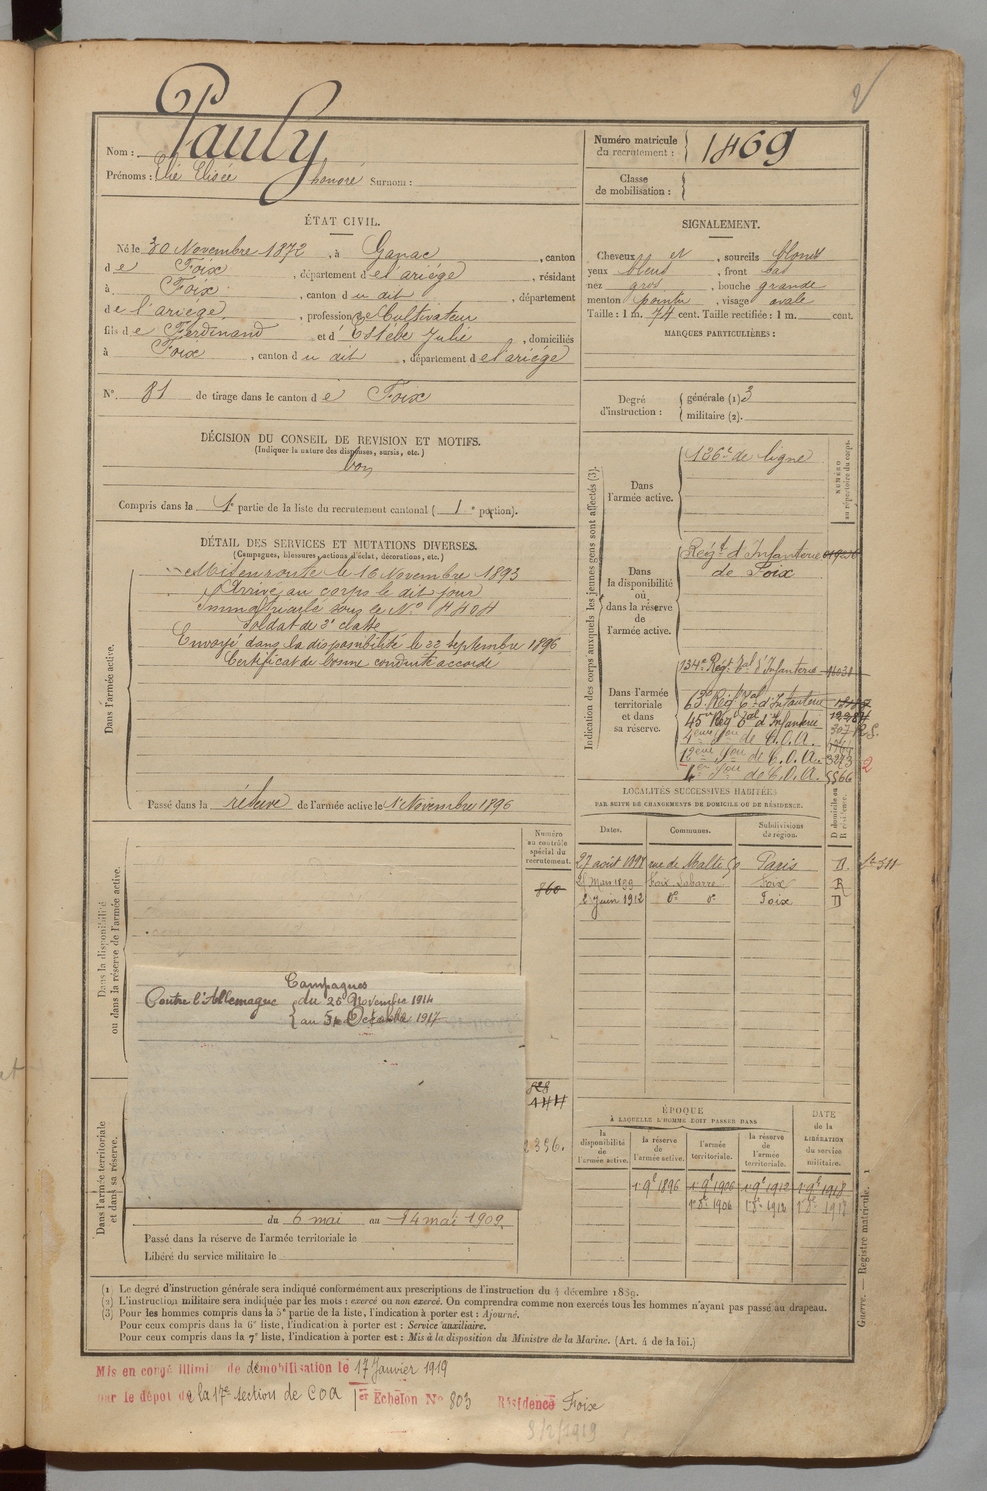 2
Nom : Pauly
Prénoms : Elie Elisée honoré Surnom :
Numéro matricule du recrutement : 1469
Classe de mobilisation :
ÉTAT CIVIL.
Né le 30 Novembre 1872, à Ganac, canton
de Foix, département de l'ariége, résidant
à Foix, canton du dit, département
de l'ariége, profession de Cultivateur
fils de Ferdinand et d'Estèbe Julie, domiciliés
à Foix, canton du dit, département de l'ariége
N° 81 de tirage dans le canton de Foix
SIGNALEMENT.
Cheveux et, sourcils blonds
yeux bleus, front bas
nez gros, bouche grande
menton pointu, visage ovale
Taille : 1 m. 74 cent. Taille rectifiée : 1 m. cent.
MARQUES PARTICULIÈRES :
Degré d'instruction : générale (1) 3
militaire (2).
DÉCISION DU CONSEIL DE REVISION ET MOTIFS.
(Indiquer la nature des dispenses, sursis, etc.)
bon
Compris dans la 1e partie de la liste du recrutement cantonal (1e portion).
DÉTAIL DES SERVICES ET MUTATIONS DIVERSES.
(Campagnes, blessures, actions d'éclat, décorations, etc.)
Dans l'armée active.
Mis en route le 16 Novembre 1893
Arrivé au corps le dit jour
Immatriculé sous le N° 4404
Soldat de 2e classe
Envoyé dans la disponibilité le 22 Septembre 1896
Certificat de bonne conduite accordé
Passé dans la réserve de l'armée active le 1 Novembre 1896
Indication des corps auxquels les jeunes gens sont affectés (3).
NUMÉRO au répertoire du corps.
Dans l'armée active.
126e de ligne
Dans la disponibilité ou dans la réserve de l'armée active.
Régt d'Infanterie
de Foix
Dans l'armée territoriale et dans sa réserve.
134e Régt Tal d'Infanterie
63e Régt Tal d'Infanterie
45e Régt Tal d'Infanterie
de C.O.A.
de C.O.A. 3293 2
de C.O.A. 5566
LOCALITÉS SUCCESSIVES HABITÉES
PAR SUITE DE CHANGEMENTS DE DOMICILE OU DE RÉSIDENCE.
D domicile ou R résidence.
Dates. Communes. Subdivisions de région.
27 août 1898 rue de Malte 59 Paris D.
21 Mars 1899 Foix Labarre Foix R
2 Juin 1912 do do Foix D
Numéro au contrôle spécial du recrutement.
860
Dans la disponibilité ou dans la réserve de l'armée active.
Campagnes
Contre l'Allemagne du 26 Novembre 1914
au 1917
Dans l'armée territoriale et dans sa réserve.
2356.
du 6 mai au 14 mai 1909
Passé dans la réserve de l'armée territoriale le
Libéré du service militaire le
ÉPOQUE
À LAQUELLE L'HOMME DOIT PASSER DANS
DATE de la LIBÉRATION du service militaire.
la disponibilité de l'armée active. la réserve de l'armée active. l'armée territoriale. la réserve de l'armée territoriale.
1 9e 1896 1 9e 1906 1 9e 1912 1 9e 1918
1 8e 1906 1 8e 1912 1 8e 1918
Guerre. — Registre matricule. 1
(1) Le degré d'instruction générale sera indiqué conformément aux prescriptions de l'instruction du 4 décembre 1889.
(2) L'instruction militaire sera indiquée par les mots : exercé ou non exercé. On comprendra comme non exercés tous les hommes n'ayant pas passé au drapeau.
(3) Pour les hommes compris dans la 5e partie de la liste, l'indication à porter est : Ajourné.
Pour ceux compris dans la 6e liste, l'indication à porter est : Service auxiliaire.
Pour ceux compris dans la 7e liste, l'indication à porter est : Mis à la disposition du Ministre de la Marine. (Art. 4 de la loi.)
Mis en congé illimi de démobilisation le 17 Janvier 1919
par le dépot de la 17e section de COA 1er Echelon No 803 Résidence Foix
8/2/1919